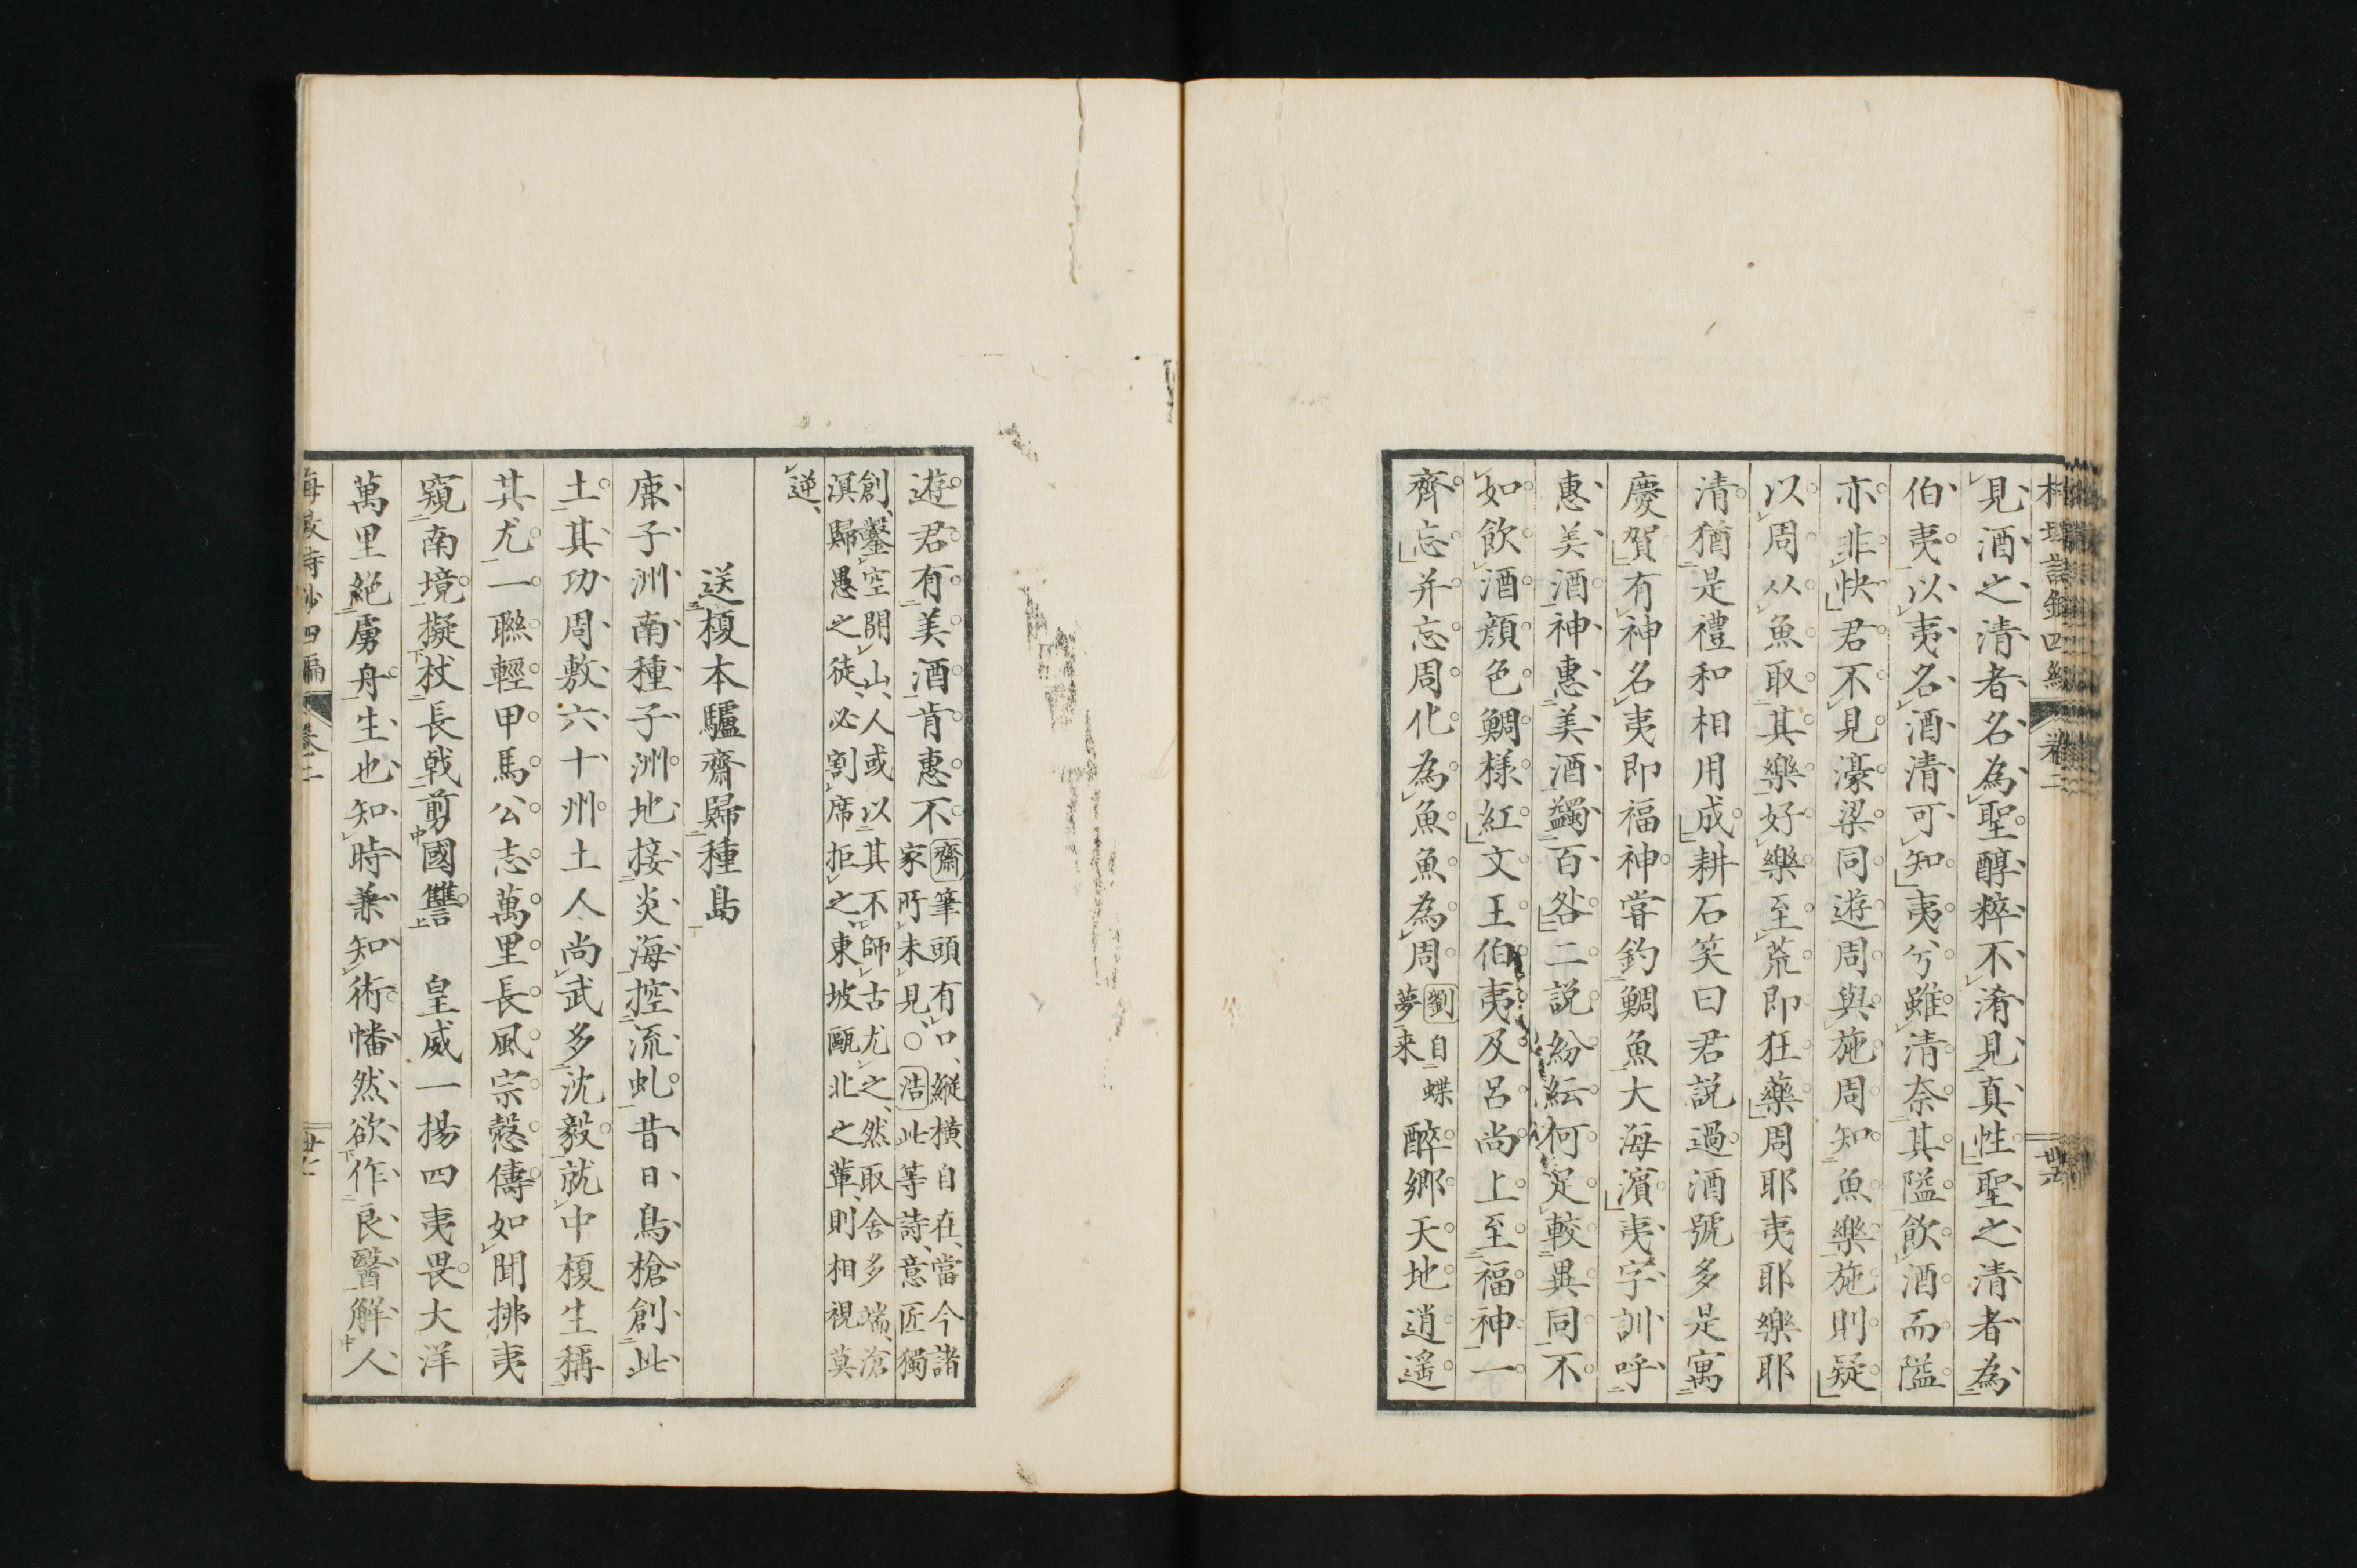 見酒之清者名為聖醇粹不淆見真性聖之清者為
伯夷以夷名酒清可知夷兮雖清奈其隘飲酒而隘
亦非快君不見濠梁同遊周與施周知魚樂施則疑
以周从魚取其樂好樂至荒即狂藥周耶夷耶樂耶
清猶是禮和相用成耕石笑曰君説過酒號多是寓
慶賀有神名夷即福神嘗釣鯛魚大海濱夷字訓呼
惠美酒神惠美酒蠲百咎二説紛紜何足較異同不
如飲酒顔色鯛樣紅文王伯夷及呂尚上至福神一
齊忘并忘周化為魚魚為周 劉自蝶夢来 醉郷天地逍遥
遊君有美酒肯惠不 齋筆頭有口縱横自在當今諸
家所未見○浩此等詩意匠獨
創鑿空開山人或以其不師古尤之然取舍多端滄
溟歸愚之徒必割席拒之東坡甌北之輩則相視莫
逆
送榎本驢齋歸種島
鹿子洲南種子洲地接炎海控流虬昔日鳥槍創此
土其功周敷六十州土人尚武多沈毅就中榎生稱
其尤一聯輕甲馬公志萬里長風宗愨儔如聞拂夷
窺南境擬杖長戟剪國讐 皇威一揚四夷畏大洋
萬里絶虜舟生也知時兼知術幡然欲作良醫解人
四編 卷二